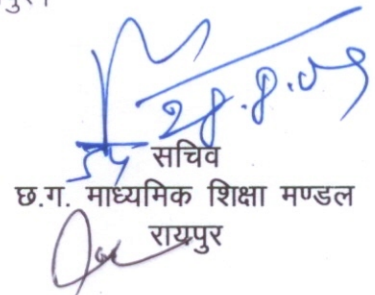 28.8.09
उप सचिव
छ.ग. माध्यमिक शिक्षा मण्डल
रायपुर